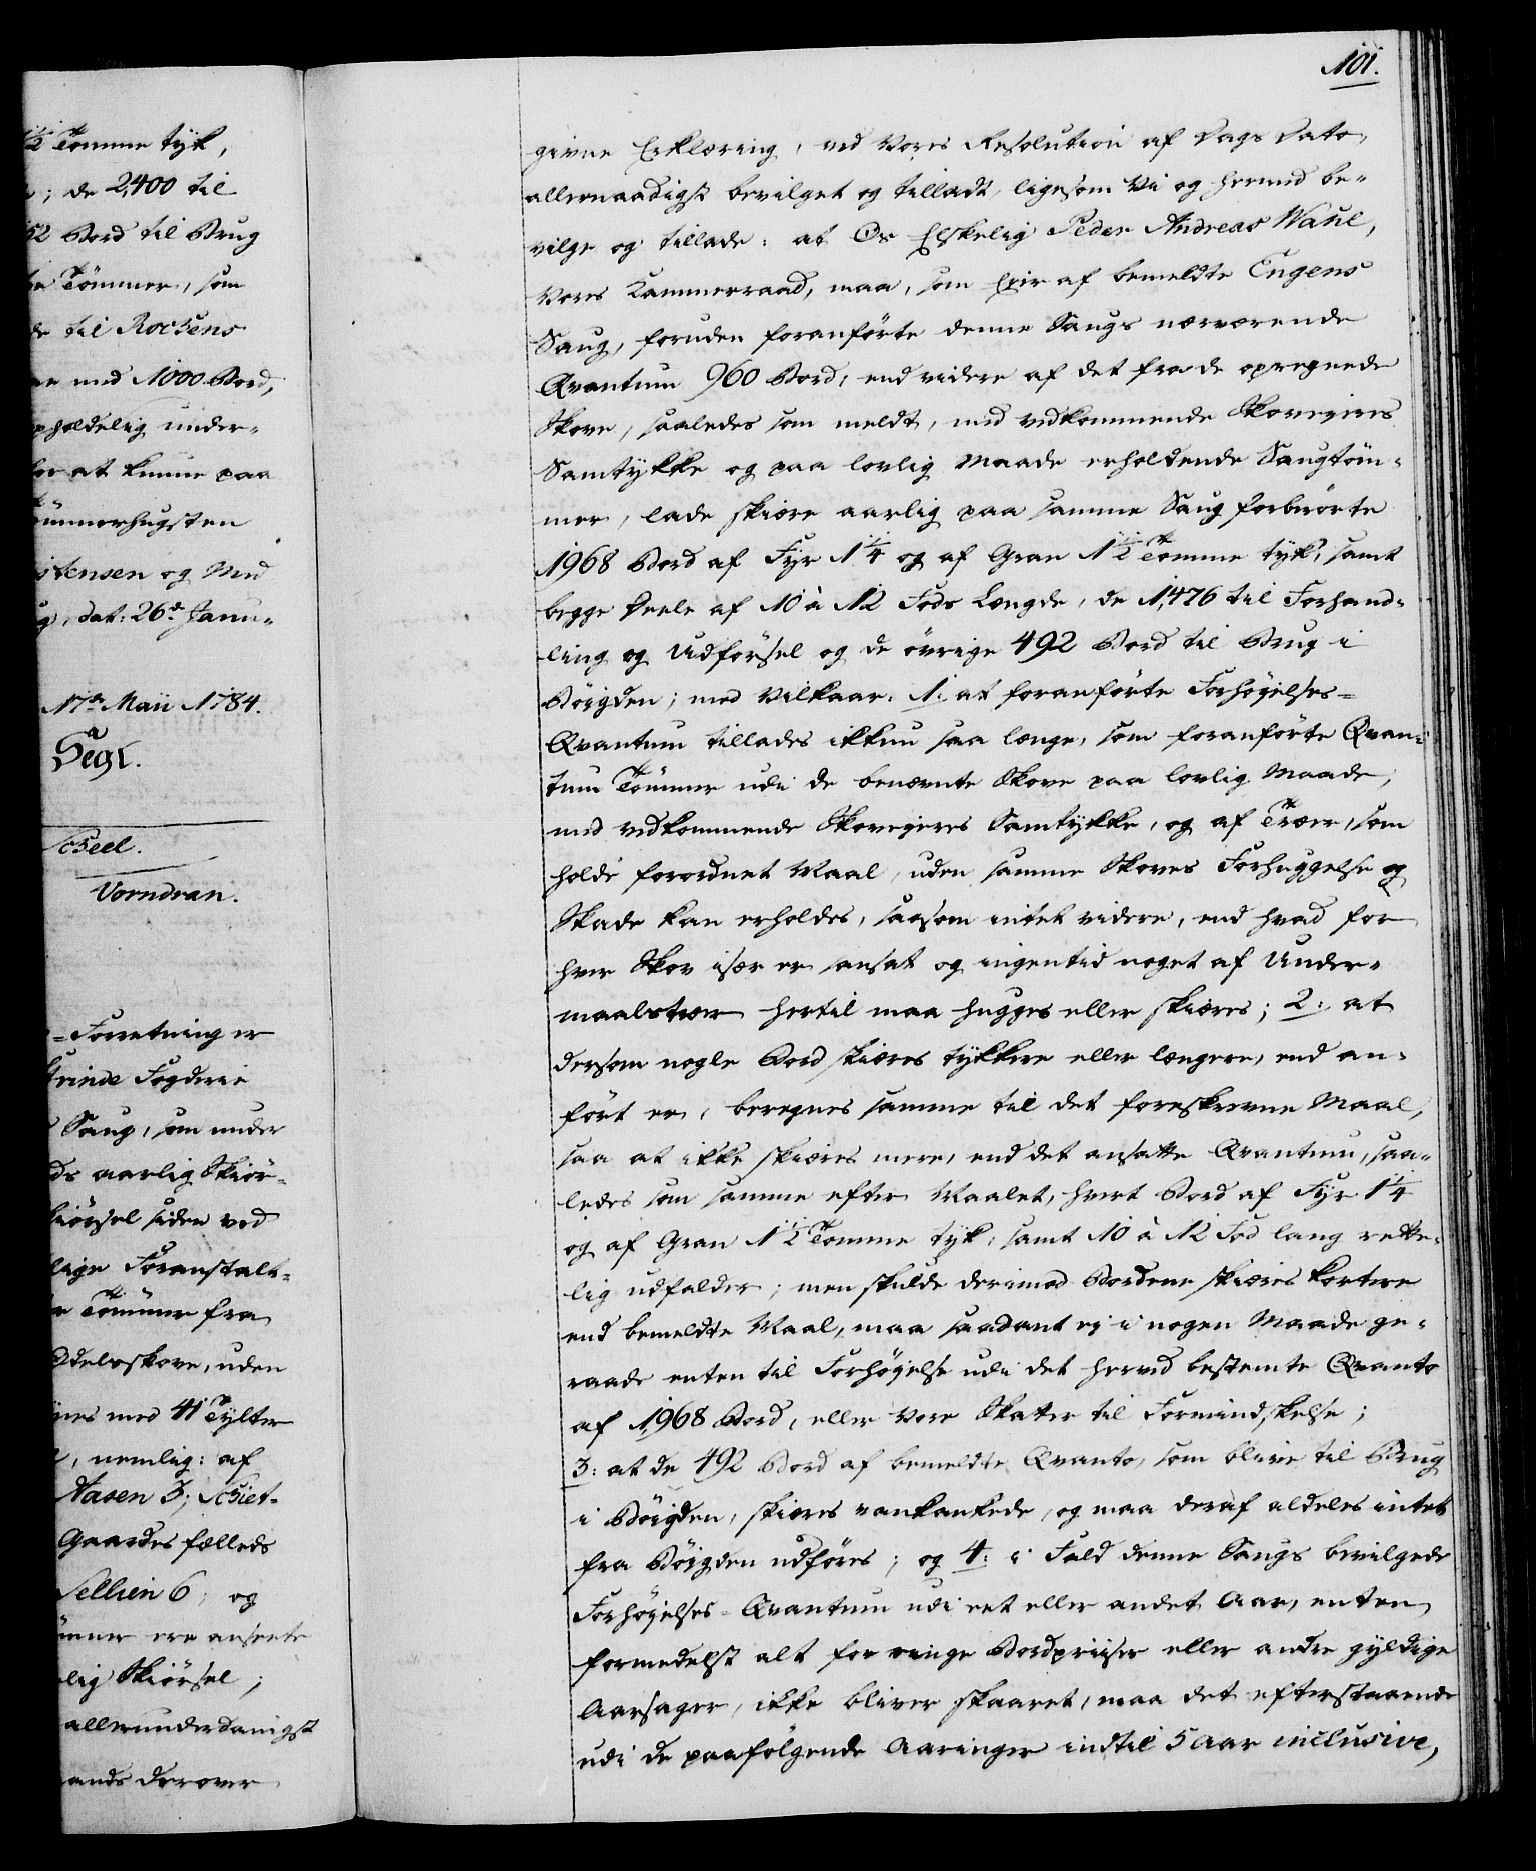 ½ Tomme tyk,
; de 2,400 til
52 Bord til Brug
Tömmer, som
de til Rochens
med 1000 Bord,
pholdelig under-
for at kunne paa
ömmerhugsten
stensen og Med
g, dat: 26de Janu-
17de Maii 1784.
Segl.
Scheel.
Vorndran.
-Forretning er
Grinde Fogderie
Saug, som under
ds aarlig Skiör-
kiörsel siden ved
lige Foranstalt-
Tömmer fra
Odelsskove, uden
ynes med 41 Tylter
, nemlig: af
Aasen 3; Schiet-
Gaardes fælleds
Sellien 6; og
ömmer ere ansente
lig Skiörsel;
allerunderdanigst
ands derover
101.
givne Erklæring, ved Vores Resolution af Dags Dato,
allernaadigst bevilget og tilladt, ligesom Vi og herved be-
vilge og tillade: at Os Elskelig Peder Andreas Wahl,
Vores Kammerraad, maa, som Eier af bemeldte Engens
Saug, foruden foranförte denne Saugs nærværende
Qvantum 960 Bord, end videre af det fra de opregnede
Skove, saaledes som meldt, med vedkommende Skoveieres
Samtykke og paa lovlig Maade erholdende Saugtöm-
mer, lade skiære aarlig paa samme Saug forberörte
1968 Bord af Fyr 1¼ og af Gran 1½ Tomme tyk, samt
begge Deele af 10 à 12 Fods Længde, de 1,476 til Forhand-
ling og Udförsel og de övrige 492 Bord til Brug i
Böigden; med Vilkaar: 1: at foranförte Forhöyelses-
Qvantum tillades ikkun saa længe, som foranförte Qvan-
tum Tömmer udi de benævnte Skove paa lovlig Maade,
med vedkommende Skoveieres Samtykke, og af Træer, som
holde forordnet Maal, uden samme Skoves Forhuggelse og
Skade kan erholdes, saasom intet videre, end hvad for
hver Skov især er ansat og ingentid noget af Under-
maalstræer hertil maa hugges eller skiæres; 2: at
dersom nogle Bord skiæres tykkere eller længere, end an-
fört er, beregnes samme til det foreskrevne Maal,
saa at ikke skiæres mere, end det ansatte Qvantum, saa-
ledes som samme efter Maalet, hvert Bord af Fyr 1¼
og af Gran 1½ Tomme tyk, samt 10 à 12 Fod lang rette-
lig udfalder; men skulde derimod Bordene skiæres kortere
end bemeldte Maal, maa saadant ej i nogen Maade ge-
raade enten til Forhöyelse udi det herved bestemte Qvanto
af 1,968 Bord, eller Vore Skatter til Formindskelse;
3: at de 492 Bord af bemeldte Qvanto, som blive til Brug
i Böigden, skiæres vankantede, og maa deraf aldeles intet
fra Böigden udföres; og 4: i Fald denne Saugs bevilgede
Forhöyelses-Qvantum udi eet eller andet Aar, enten
formedelst alt for ringe Bordpriiser eller andre gyldige
Aarsager, ikke bliver skaaret, maa det efterstaaende
udi de paafölgende Aaringer indtil 5 Aar inclusive,